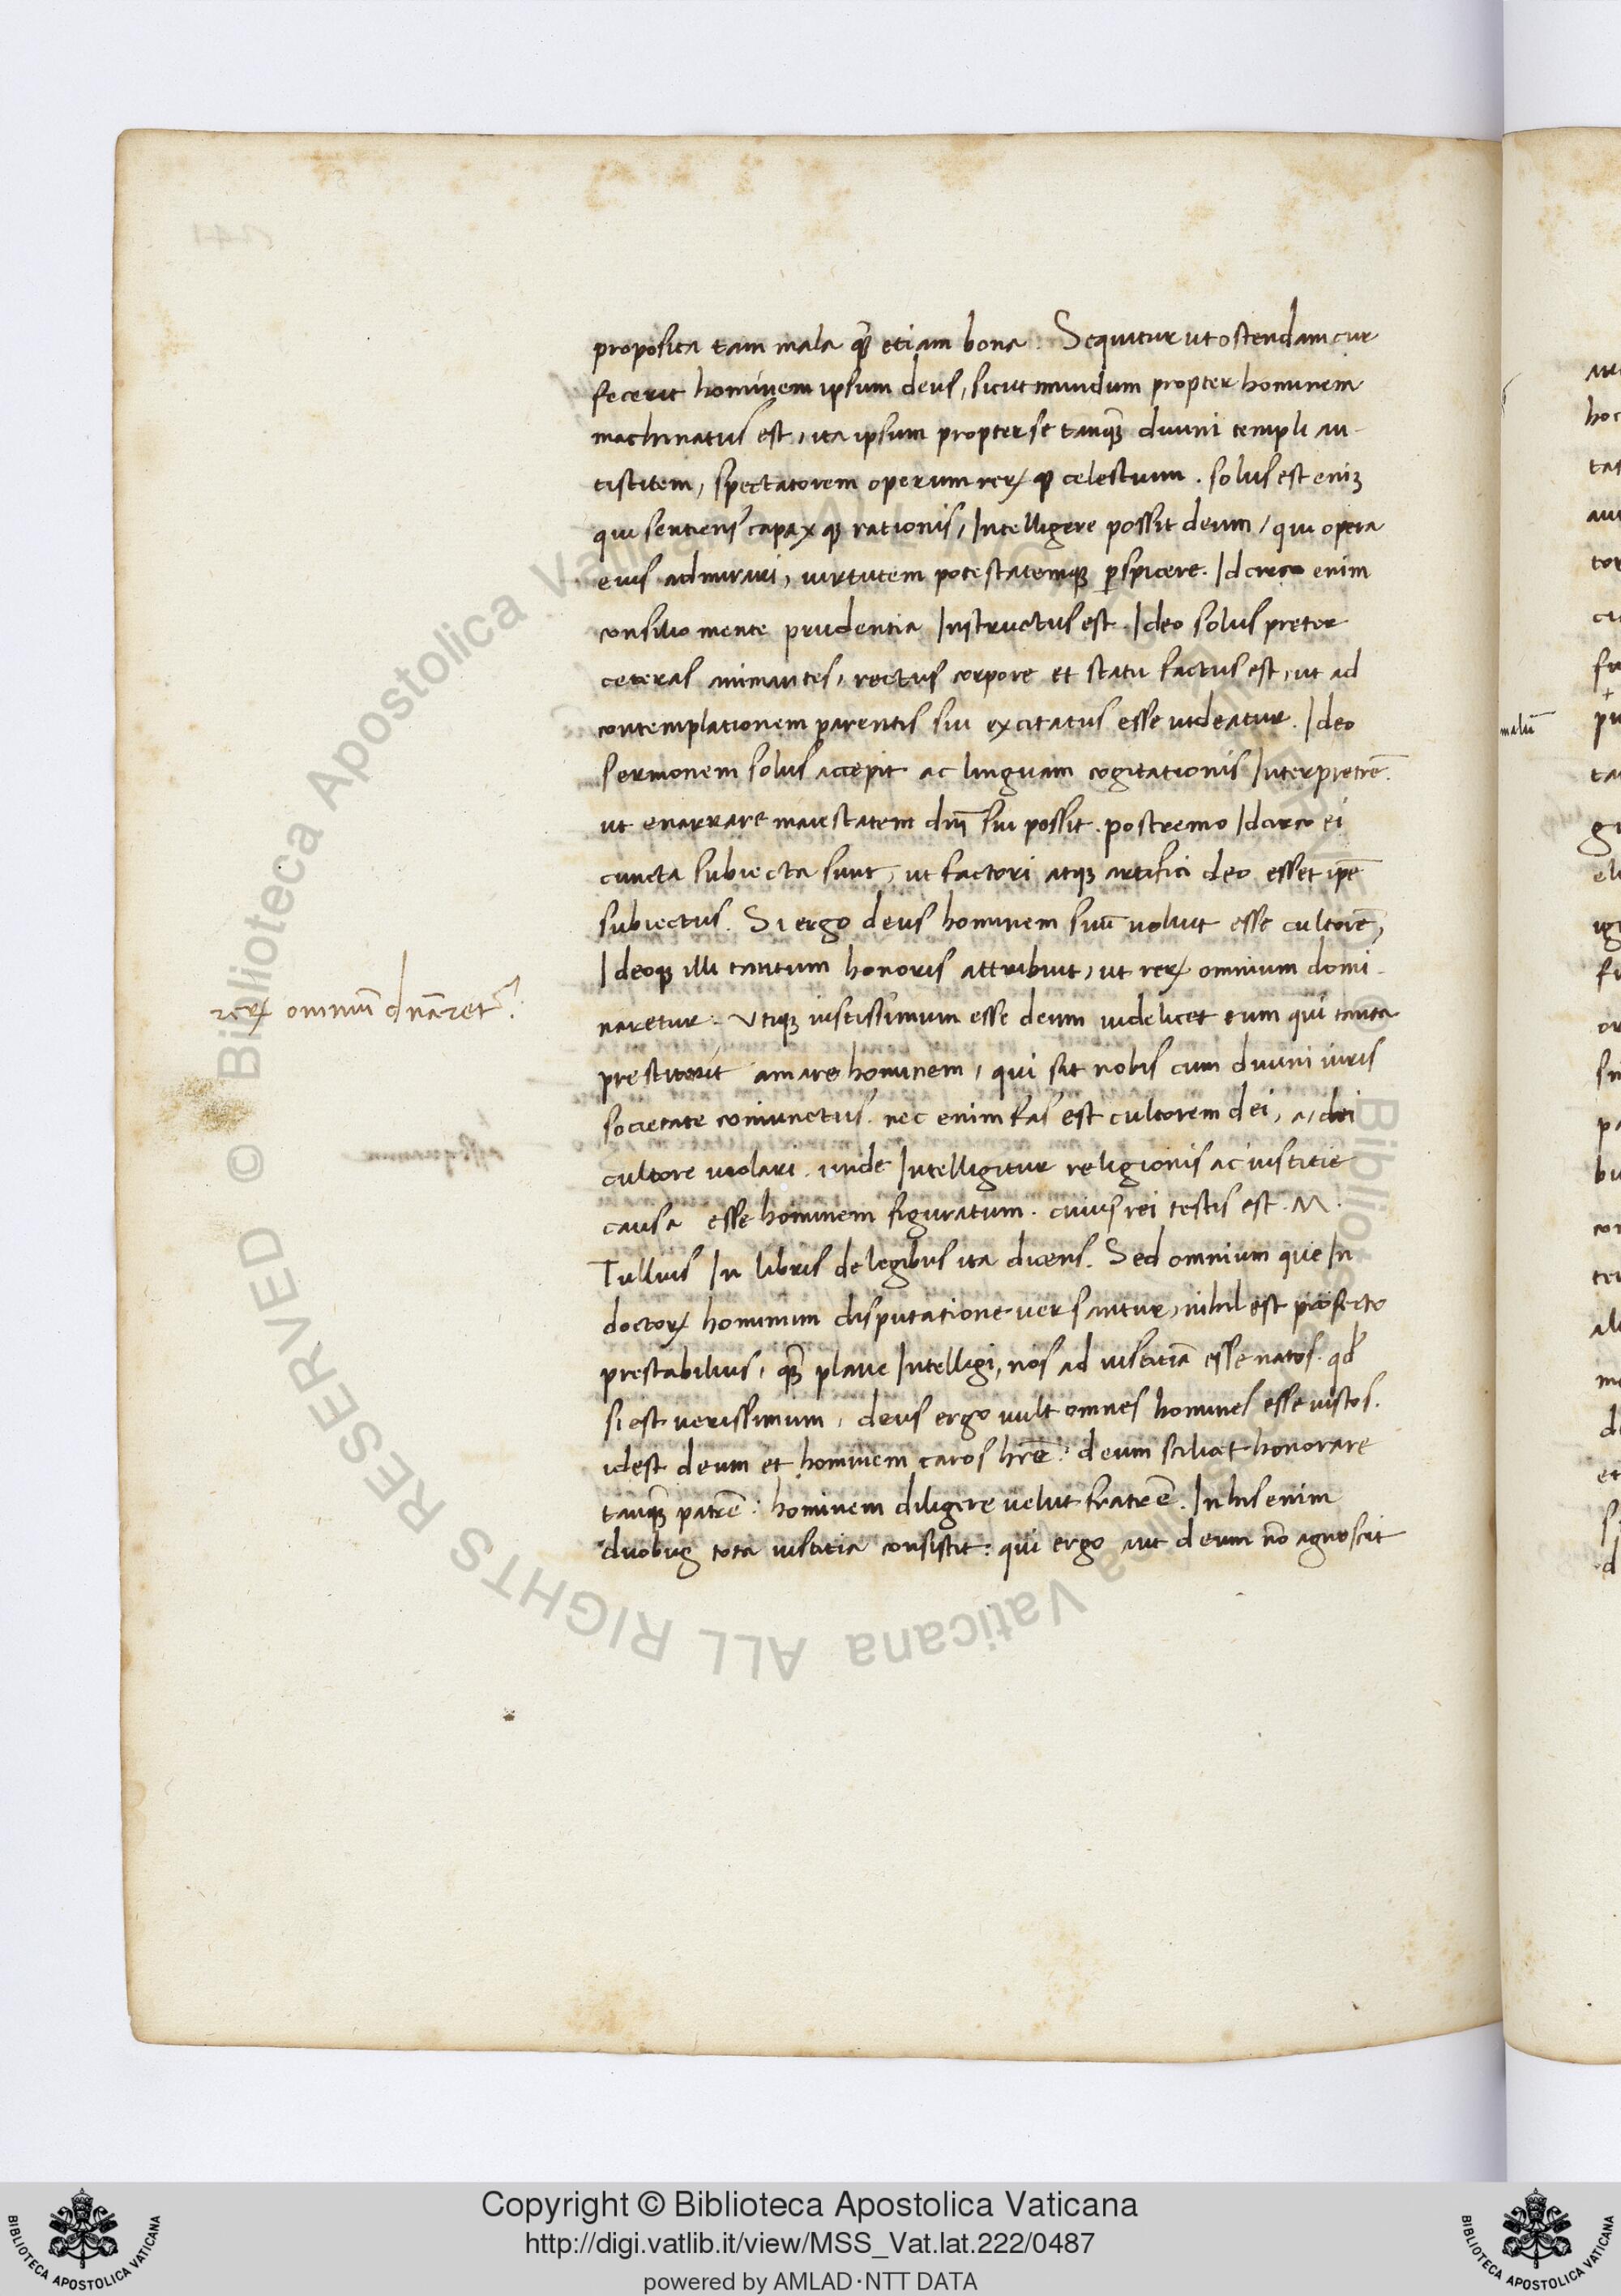 proposita tam mala quã etiam bona. Sequitur ut ostendam cur
fecerit hominem ipsum deus, sicut mundum propter hominem
machinatus est, ita ipsum propter se tanquã diuini templi an-
tistitem, spectatorem operum rerꝝ qꝫ celestium. solus est eniꝫ
qui sentiens capax qꝫ rationis, Intelligere possit deum, qui opera
eius admirari, uirtutem potestatemqꝫ ꝑspicere. Idcirco enim
consilio mente prudentia Instructus est. Ideo solus preter
ceteras animantes, rectus corpore et statu factus est, ut ad
contemplationem parentis sui excitatus esse uideatur. Ideo
sermonem solus accepit ac linguam cogitationis Interpretẽ.
ut enarrare maiestatem dñi sui possit. postremo Idcirco ei
cuncta subiecta sunt, ut factori atqꝫ artifici deo esset ipẽ
subiectus. Si ergo deus hominem suũ uoluit esse cultorẽ,
Ideoqꝫ illi tantum honoris attribuit, ut rerꝝ omnium domi-
naretur. Utiqꝫ iustissimum esse deum uidelicet eum qui tanta
prestiterit amare hominem, qui sit nobis cum diuini iuris
societate coniunctus. nec enim fas est cultorem dei, a, dei
cultore uiolari. unde Intelligitur religionis ac iustitie
causa esse hominem figuratum. cuius rei testis est. M.
Tullius In libris de legibus ita dicens. Sed omnium que In
doctorꝝ hominum disputatione uersantur, nihil est profecto
prestabilius, quã plane Intelligi, nos ad iustitiã esse natos. qď
si est uerissimum, deus ergo uult omnes homines esse iustos.
idest deum et hominem caros hr̃e: deum scilicet honorare
tanquã patrẽ: hominem diligere uelut fratrẽ. In his enim
duobus tota iustitia consistit: qui ergo aut deum nõ agnoscit
rerꝝ omniũ dñaret᷑.
malũ
Copyright © Biblioteca Apostolica Vaticana
http://digi.vatlib.it/view/MSS_Vat.lat.222/0487
powered by AMLAD·NTT DATA
BIBLIOTECA APOSTOLICA VATICANA
BIBLIOTECA APOSTOLICA VATICANA
© Biblioteca Apostolica Vaticana ALL RIGHTS RESERVED
© Biblioteca Apostolica Vaticana ALL RIGHTS RESERVED